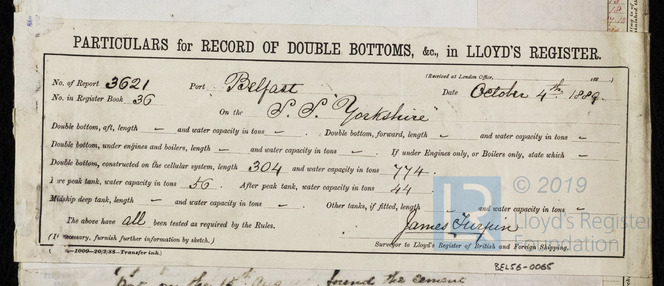 PARTICULARS for RECORD OF DOUBLE BOTTOMS, &c., in LLOYD'S REGISTER.
(Received at London Office, 188 )
No. of Report 3621 Port Belfast Date October 4th 1889.
No. in Register Book 36 On the S.S. "Yorkshire"
Double bottom, aft, length — and water capacity in tons — . Double bottom, forward, length — and water capacity in tons —
Double bottom, under engines and boilers, length — and water capacity in tons — . If under Engines only, or Boilers only, state which —
Double bottom, constructed on the cellular system, length 304 and water capacity in tons 774.
Fore peak tank, water capacity in tons 56. After peak tank, water capacity in tons 44.
Midship deep tank, length — and water capacity in tons — Other tanks, if fitted, length — and water capacity in tons —
The above have all been tested as required by the Rules. James Turpin
(If necessary, furnish further information by sketch.) Surveyor to Lloyd's Register of British and Foreign Shipping.
—1000–20/2/88—Transfer ink.)
BEL56-0065
LR © 2019
Lloyd's Register
Foundation
found the cement